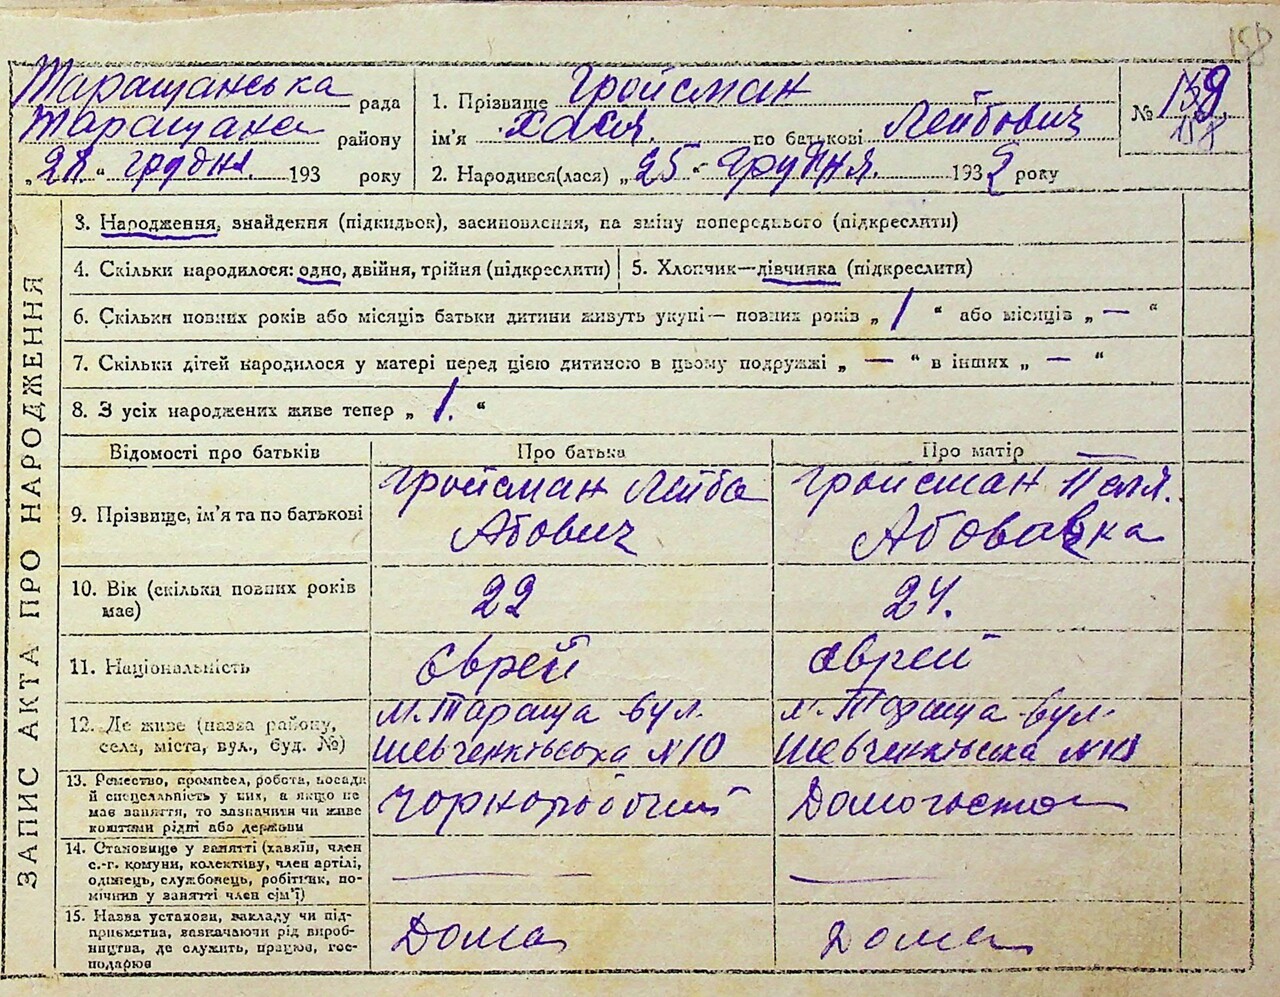 158
Таращанська рада
Таращана району
„28“ грудня. 193 року
1. Прізвище Гройсман
ім'я Хася. по батькові Лейбович
2. Народився(лася) „25“ Грудня. 1932 року
№ 159
158
ЗАПИС АКТА ПРО НАРОДЖЕННЯ
3. Народження, знайдення (підкидьок), засиновлення, на зміну попереднього (підкреслити)
4. Скільки народилося: одно, двійня, трійня (підкреслити) 5. Хлопчик—дівчинка (підкреслити)
6. Скільки повних років або місяців батьки дитини живуть укупі— повних років „ 1 “ або місяців „ — “
7. Скільки дітей народилося у матері перед цією дитиною в цьому подружжі „ — “ в інших „ — “
8. З усіх народжених живе тепер „ 1. “
Відомості про батьків Про батька Про матір
9. Прізвище, ім'я та по батькові
Гройсман Лейба
Абович
Гройсман Пеля.
Абовавка
10. Вік (скільки повних років
має)
22
24.
11. Національність
єврей
єврей
12. Де живе (назва району,
села, міста, вул., буд. №)
м. Тараща вул.
Шевченківська №10
м. Тараща вул.
Шевченківська №
13. Ремество, промисел, робота, посада
й спецсяльність у них, а якщо не
має заняття, то зазначити чи живе
коштами рідні або держави
Чорноробочий
Домогоспо
14. Становище у занятті (хазяїн, член
с.-г. комуни, колективу, член артілі,
одинець, службовець, робітник, по-
мічник у занятті член сім'ї)
—
—
15. Назва установи, закладу чи під-
приємства, зазначаючи рід вироб-
ництва, де служить, працює, гос-
подарює
Дома
Дома